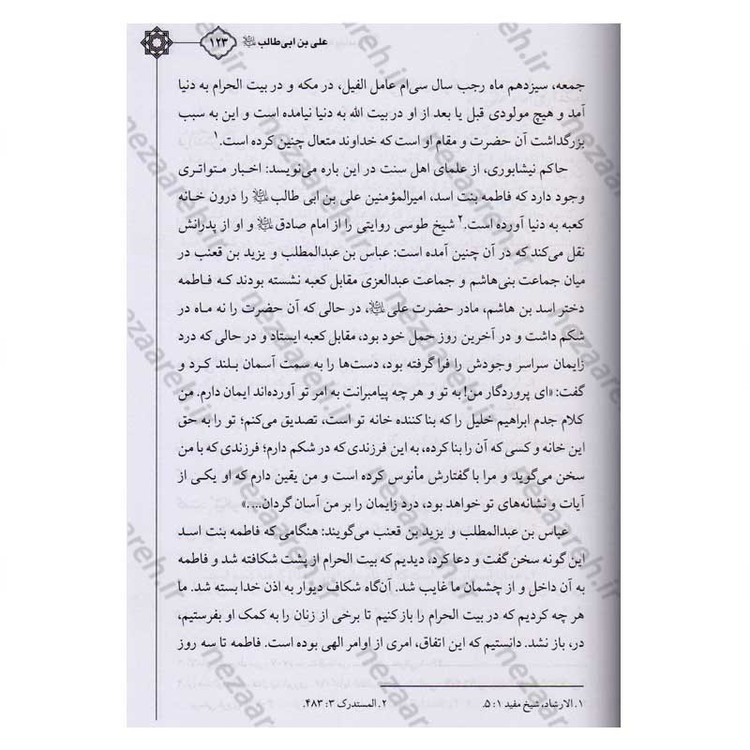 علی بن ابی‌طالب
۱۲۳
جمعه، سیزدهم ماه رجب سال سی‌ام عامل الفیل، در مکه و در بیت الحرام به دنیا
آمد و هیچ مولودی قبل یا بعد از او در بیت الله به دنیا نیامده است و این به سبب
بزرگداشت آن حضرت و مقام او است که خداوند متعال چنین کرده است.۱
حاکم نیشابوری، از علمای اهل سنت در این باره می‌نویسد: اخبار متواتری
وجود دارد که فاطمه بنت اسد، امیرالمؤمنین علی بن ابی طالب را درون خانه
کعبه به دنیا آورده است.۲ شیخ طوسی روایتی را از امام صادق و او از پدرانش
نقل می‌کند که در آن چنین آمده است: عباس بن عبدالمطلب و یزید بن قعنب در
میان جماعت بنی‌هاشم و جماعت عبدالعزی مقابل کعبه نشسته بودند که فاطمه
دختر اسد بن هاشم، مادر حضرت علی، در حالی که آن حضرت را نه ماه در
شکم داشت و در آخرین روز حمل خود بود، مقابل کعبه ایستاد و در حالی که درد
زایمان سراسر وجودش را فرا گرفته بود، دست‌ها را به سمت آسمان بلند کرد و
گفت: «ای پروردگار من! به تو و هر چه پیامبرانت به امر تو آورده‌اند ایمان دارم. من
کلام جدم ابراهیم خلیل را که بنا کننده خانه تو است، تصدیق می‌کنم؛ تو را به حق
این خانه و کسی که آن را بنا کرده، به این فرزندی که در شکم دارم؛ فرزندی که با من
سخن می‌گوید و مرا با گفتارش مأنوس کرده است و من یقین دارم که او یکی از
آیات و نشانه‌های تو خواهد بود، درد زایمان را بر من آسان گردان....»
عباس بن عبدالمطلب و یزید بن قعنب می‌گویند: هنگامی که فاطمه بنت اسد
این گونه سخن گفت و دعا کرد، دیدیم که بیت الحرام از پشت شکافته شد و فاطمه
به آن داخل و از چشمان ما غایب شد. آن‌گاه شکاف دیوار به اذن خدا بسته شد. ما
هر چه کردیم که در بیت الحرام را باز کنیم تا برخی از زنان را به کمک او بفرستیم،
در، باز نشد. دانستیم که این اتفاق، امری از اوامر الهی بوده است. فاطمه تا سه روز
۱. الارشاد، شیخ مفید ۱: ۵. ۲. المستدرک ۳: ۴۸۳.
nezaareh.ir